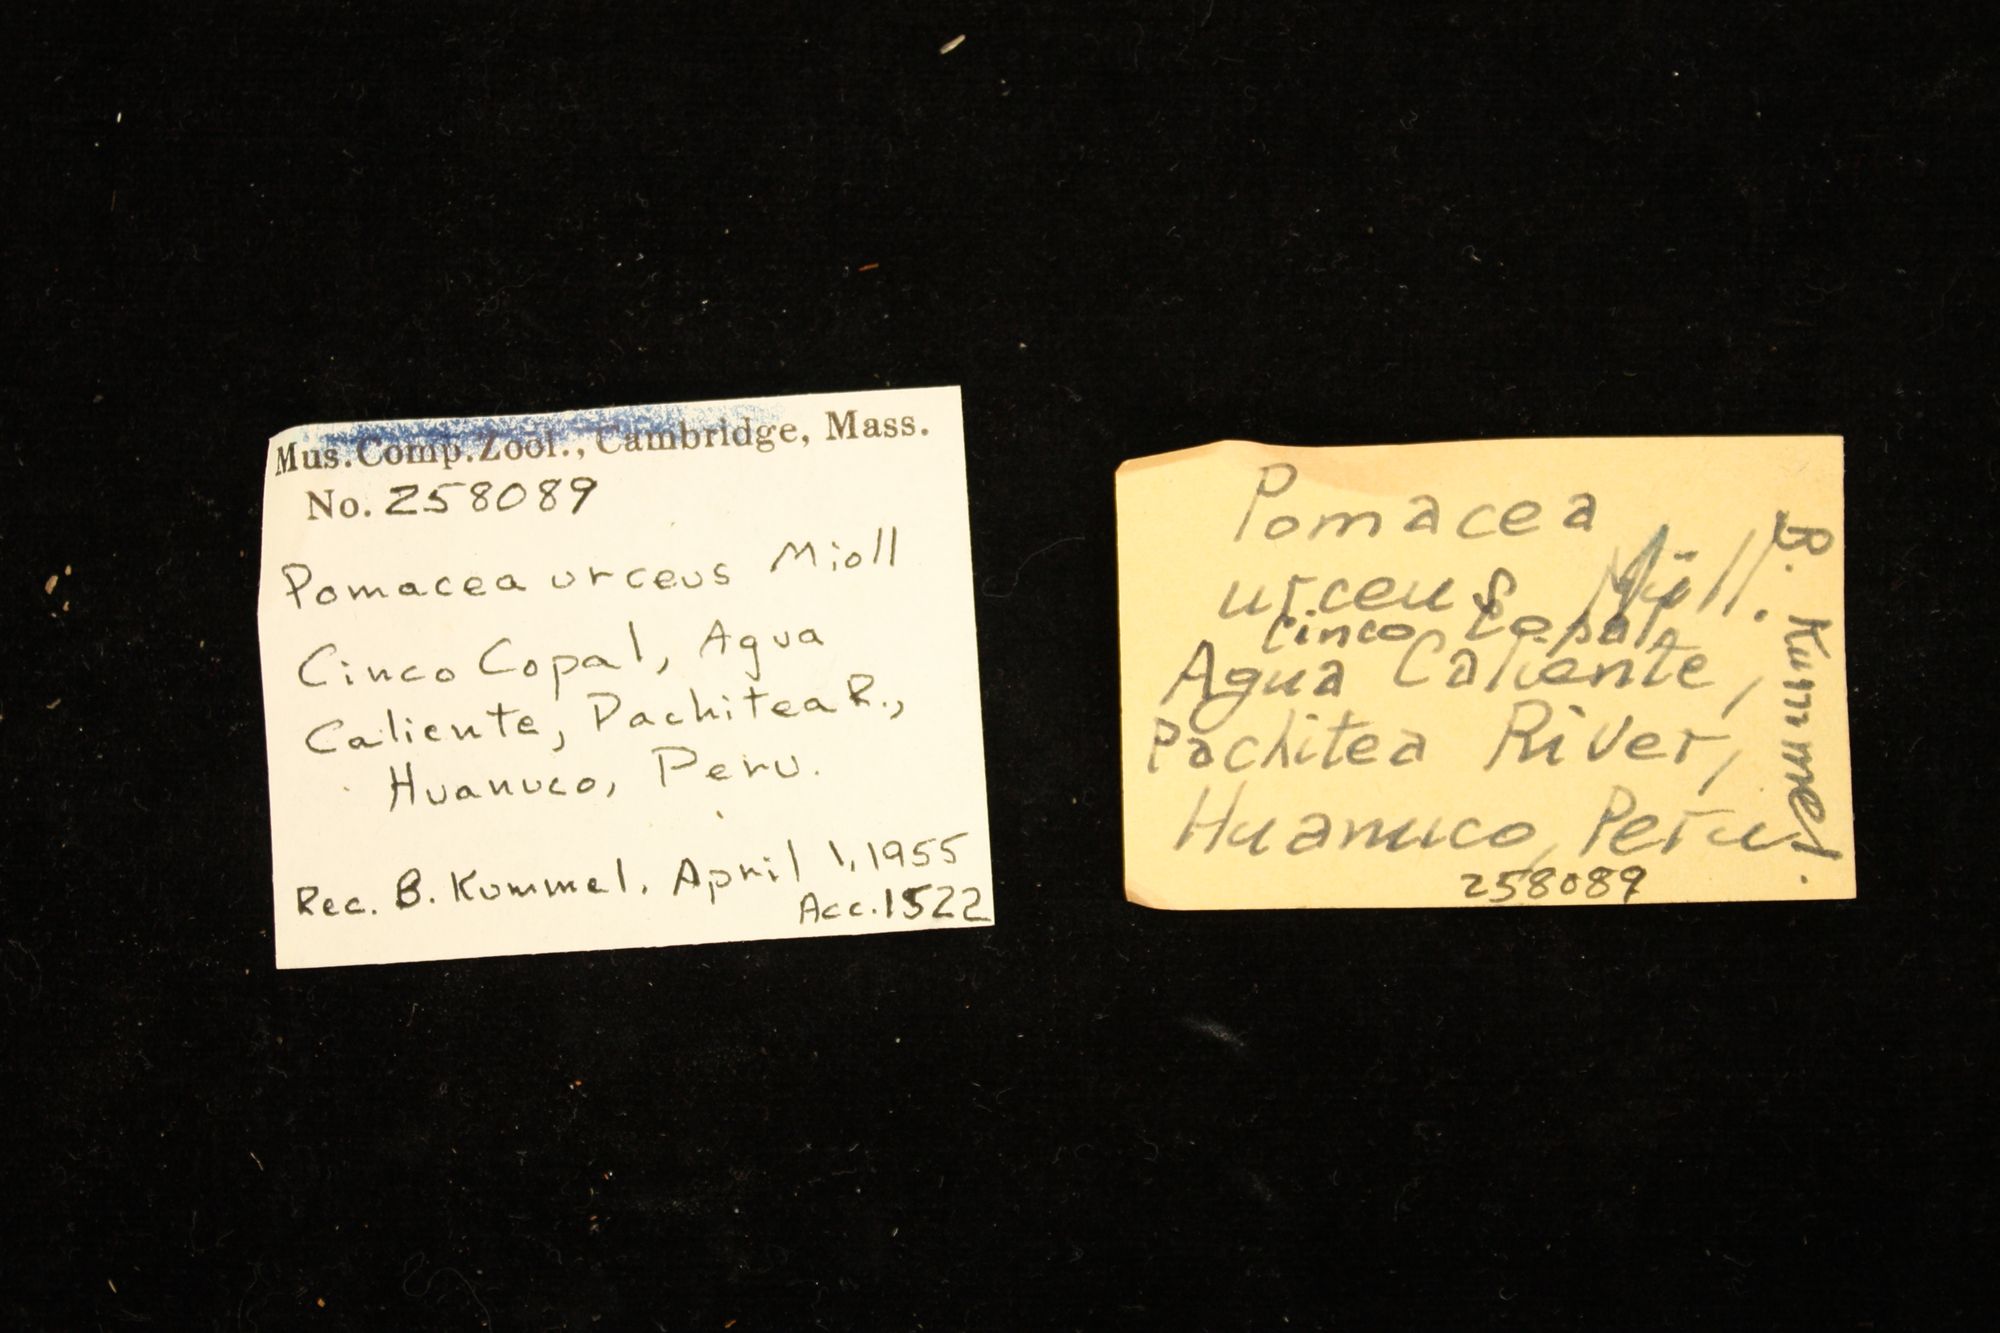 Mus. Comp. Zool., Cambridge, Mass.
No. 258089
Pomacea urceus Mioll
Cinco Copal, Agua
Caliente, Pachitea R.,
Huanuco, Peru.
Rec. B. Kummel, April 1, 1955
Acc. 1522
Pomacea
urceus Müll.
Cinco Copal
Agua Caliente,
Pachitea River,
Huanuco, Peru
258089
B. Kummel.